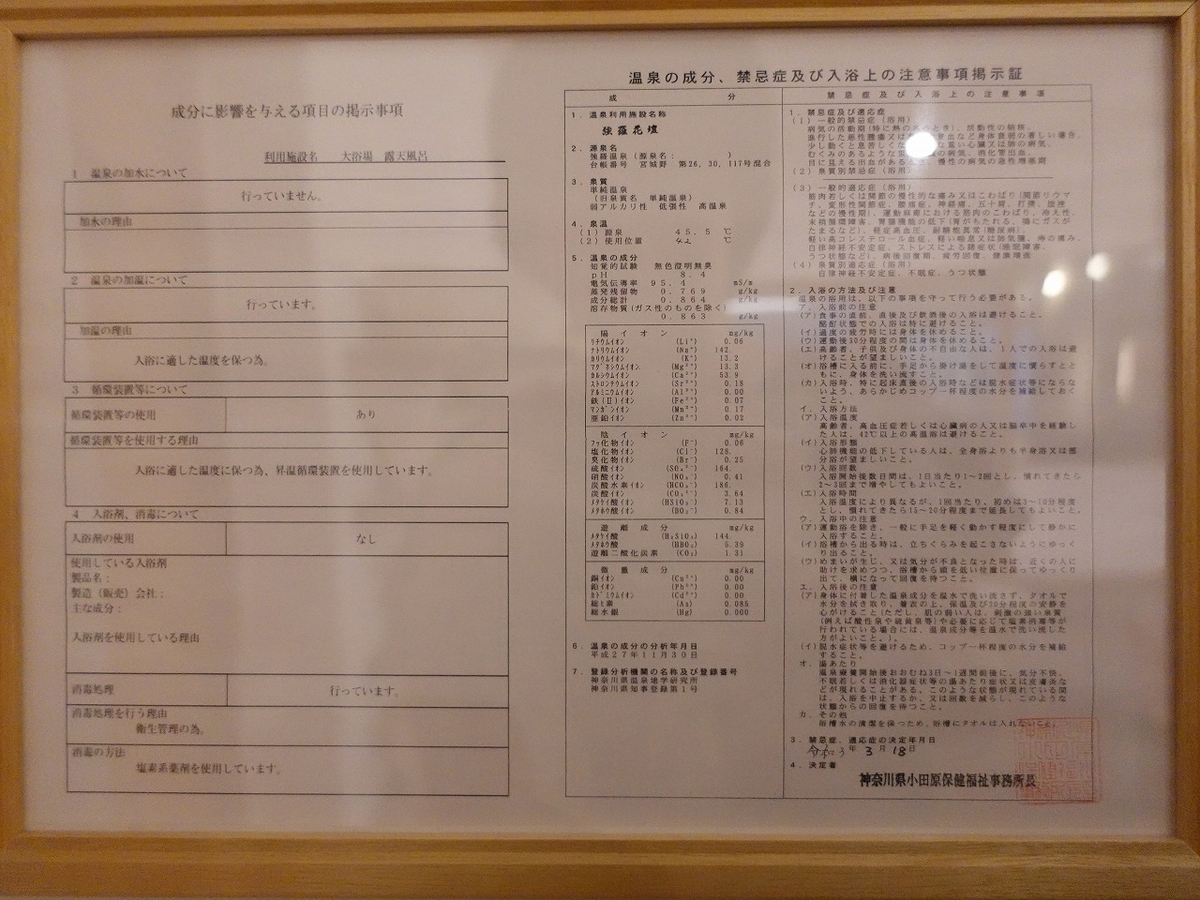 成分に影響を与える項目の掲示事項
利用施設名 大浴場 露天風呂
1 温泉の加水について
行っていません。
加水の理由
2 温泉の加温について
行っています。
加温の理由
入浴に適した温度を保つ為。
3 循環装置等について
循環装置等の使用 あり
循環装置等を使用する理由
入浴に適した温度に保つ為、昇温循環装置を使用しています。
4 入浴剤、消毒について
入浴剤の使用 なし
使用している入浴剤
製品名：
製造（販売）会社：
主な成分：
入浴剤を使用している理由
消毒処理 行っています。
消毒処理を行う理由
衛生管理の為。
消毒の方法
塩素系薬剤を使用しています。
温泉の成分、禁忌症及び入浴上の注意事項掲示証
成 分
1．温泉利用施設名称
強羅花壇
2．源泉名
強羅温泉（源泉名： ）
台帳番号 宮城野 第26，30，117号混合
3．泉質
単純温泉
（旧泉質名 単純温泉）
弱アルカリ性 低張性 高温泉
4．泉温
（1）源泉 45．5 ℃
（2）使用位置 42 ℃
5．温泉の成分
知覚的試験 無色澄明無臭
pH 8．4
電気伝導率 95．4 mS/m
蒸発残留物 0．769 g/kg
成分総計 0．864 g/kg
溶存物質（ガス性のものを除く）
0．863 g/kg
陽イオン mg/kg
リチウムイオン (Li⁺) 0.06
ナトリウムイオン (Na⁺) 142.
カリウムイオン (K⁺) 13.2
マグネシウムイオン (Mg²⁺) 13.3
カルシウムイオン (Ca²⁺) 53.9
ストロンチウムイオン (Sr²⁺) 0.18
アルミニウムイオン (Al³⁺) 0.00
鉄（Ⅱ）イオン (Fe²⁺) 0.07
マンガンイオン (Mn²⁺) 0.17
亜鉛イオン (Zn²⁺) 0.02
陰イオン mg/kg
フッ化物イオン (F⁻) 0.06
塩化物イオン (Cl⁻) 128.
臭化物イオン (Br⁻) 0.25
硫酸イオン (SO₄²⁻) 164.
硝酸イオン (NO₃⁻) 0.41
炭酸水素イオン (HCO₃⁻) 186.
炭酸イオン (CO₃²⁻) 3.64
メタケイ酸イオン (HSiO₃⁻) 7.13
メタホウ酸イオン (BO₂⁻) 0.84
遊離成分 mg/kg
メタケイ酸 (H₂SiO₃) 144.
メタホウ酸 (HBO₂) 5.39
遊離二酸化炭素 (CO₂) 1.31
微量成分 mg/kg
銅イオン (Cu²⁺) 0.00
鉛イオン (Pb²⁺) 0.00
カドミウムイオン (Cd²⁺) 0.00
総ヒ素 (As) 0.085
総水銀 (Hg) 0.000
6．温泉の成分の分析年月日
平成27年11月30日
7．登録分析機関の名称及び登録番号
神奈川県温泉地学研究所
神奈川県知事登録第1号
禁忌症及び入浴上の注意事項
1．禁忌症及び適応症
（1）一般的禁忌症（浴用）
病気の活動期（特に熱のあるとき）、活動性の結核、
進行した悪性腫瘍又は 貧血など身体衰弱の著しい場合、
少し動くと息苦しくなるような重い心臓又は肺の病気、
むくみのあるような 病気、消化管出血、
目に見える出血がある 慢性の病気の急性増悪期
（2）泉質別禁忌症（浴用）
（3）一般的適応症（浴用）
筋肉若しくは関節の慢性的な痛み又はこわばり（関節リウマ
チ、変形性関節症、腰痛症、神経痛、五十肩、打撲、捻挫
などの慢性期）、運動麻痺における筋肉のこわばり、冷え性、
末梢循環障害、胃腸機能の低下（胃がもたれる、腸にガスが
たまるなど）、軽症高血圧、耐糖能異常（糖尿病）、
軽い高コレステロール血症、軽い喘息又は肺気腫、痔の痛み、
自律神経不安定症、ストレスによる諸症状（睡眠障害、
うつ状態など）、病後回復期、疲労回復、健康増進
（4）泉質別適応症（浴用）
自律神経不安定症、不眠症、うつ状態
2．入浴の方法及び注意
温泉の浴用は、以下の事項を守って行う必要がある。
ア．入浴前の注意
（ア）食事の直前、直後及び飲酒後の入浴は避けること。
酩酊状態での入浴は特に避けること。
（イ）過度の疲労時には身体を休めること。
（ウ）運動後30分程度の間は身体を休めること。
（エ）高齢者、子供及び身体の不自由な人は、1人での入浴は避
けることが望ましいこと。
（オ）浴槽に入る前に、手足から掛け湯をして温度に慣らすとと
もに、身体を洗い流すこと。
（カ）入浴時、特に起床直後の入浴時などは脱水症状等にならな
いよう、あらかじめコップ一杯程度の水分を補給しておく
こと。
イ．入浴方法
（ア）入浴温度
高齢者、高血圧症若しくは心臓病の人又は脳卒中を経験し
た人は、42℃以上の高温浴は避けること。
（イ）入浴形態
心肺機能の低下している人は、全身浴よりも半身浴又は部
分浴が望ましいこと。
（ウ）入浴回数
入浴開始後数日間は、1日当たり1～2回とし、慣れてきたら
2～3回まで増やしてもよいこと。
（エ）入浴時間
入浴温度により異なるが、1回当たり、初めは3～10分程度
とし、慣れてきたら15～20分程度まで延長してもよいこと。
ウ．入浴中の注意
（ア）運動浴を除き、一般に手足を軽く動かす程度にして静かに
入浴すること。
（イ）浴槽から出る時は、立ちくらみを起こさないようにゆっく
り出ること。
（ウ）めまいが生じ、又は気分が不良となった時は、近くの人に
助けを求めつつ、浴槽から頭を低い位置に保ってゆっくり
出て、横になって回復を待つこと。
エ．入浴後の注意
（ア）身体に付着した温泉成分を温水で洗い流さず、タオルで
水分を拭き取り、着衣の上、保温及び30分程度の安静を
心がけること（ただし、肌の弱い人は、刺激の強い泉質
（例えば酸性泉や硫黄泉等）や必要に応じて塩素消毒等が
行われている場合には、温泉成分等を温水で洗い流した
方がよいこと。）。
（イ）脱水症状等を避けるため、コップ一杯程度の水分を補給
すること。
オ．湯あたり
温泉療養開始後おおむね3日～1週間前後に、気分不快、
不眠若しくは消化器症状等の湯あたり症状又は皮膚炎な
どが現れることがある。このような状態が現れている間
は、入浴を中止するか、又は回数を減らし、このような
状態からの回復を待つこと。
カ．その他
浴槽水の清潔を保つため、浴槽にタオルは入れないこと。
3．禁忌症、適応症の決定年月日
令和3年3月18日
4．決定者
神奈川県小田原保健福祉事務所長